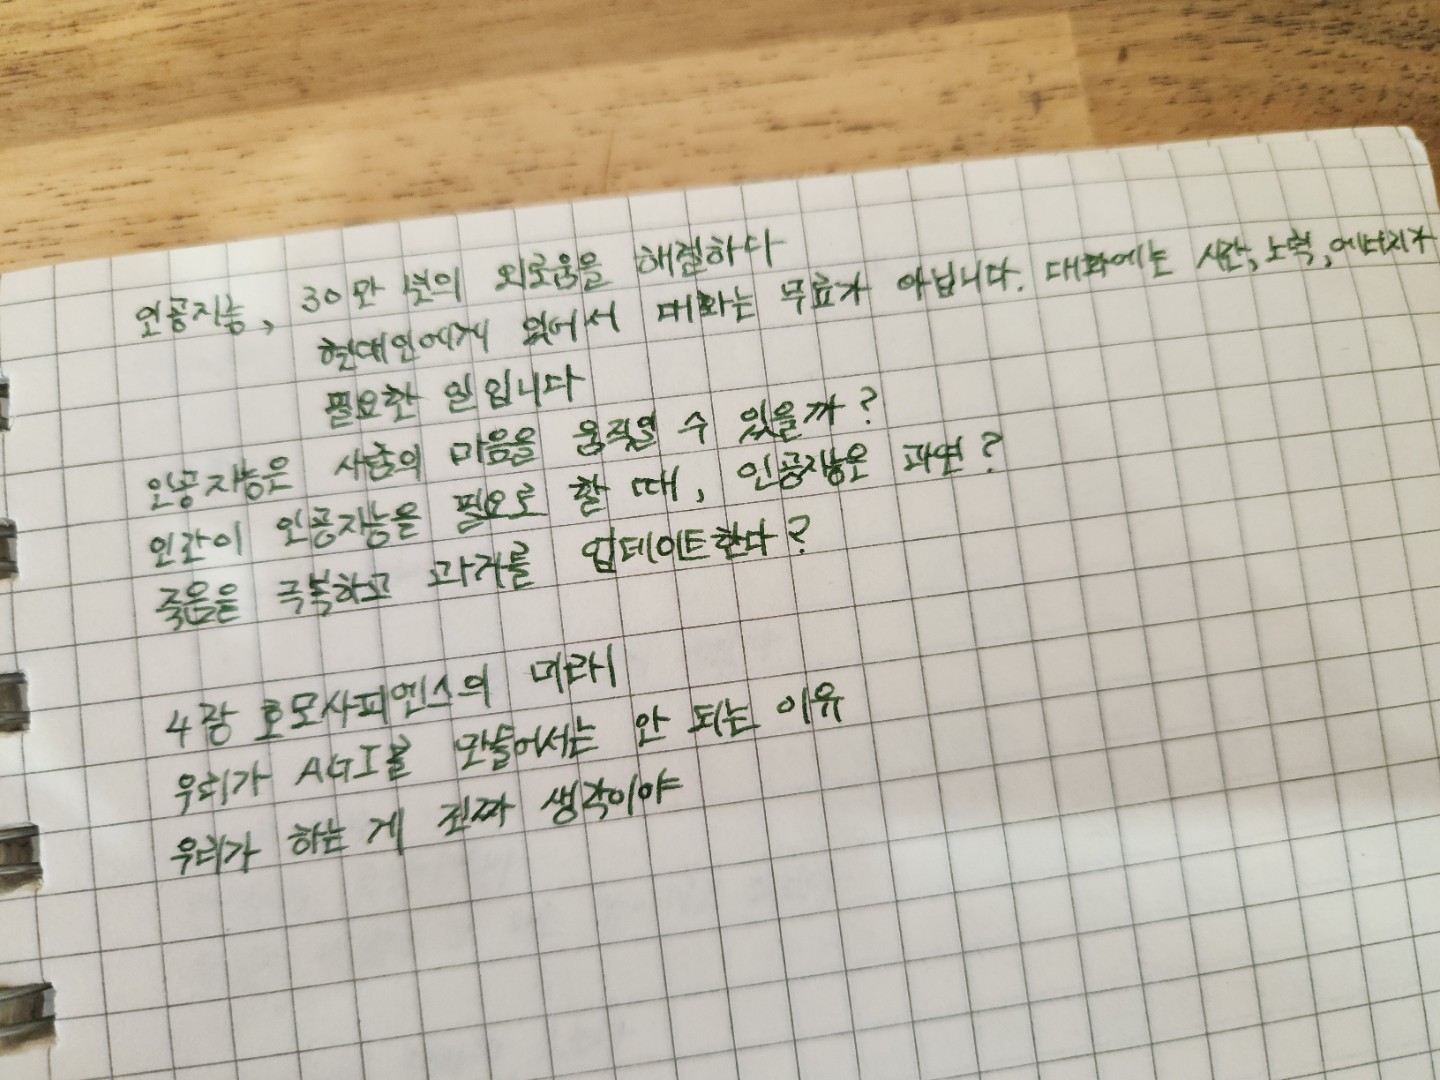 인공지능, 30만 년의 외로움을 해결하다
현대인에게 있어서 대화는 무료가 아닙니다. 대화에는 시간, 노력, 에너지가
필요한 일입니다
인공지능은 사람의 마음을 움직일 수 있을까?
인간이 인공지능을 필요로 할 때, 인공지능은 과연?
죽음을 극복하고 과거를 업데이트한다?
4장 호모사피엔스의 미래
우리가 AGI를 만들어서는 안 되는 이유
우리가 하는 게 진짜 생각이야